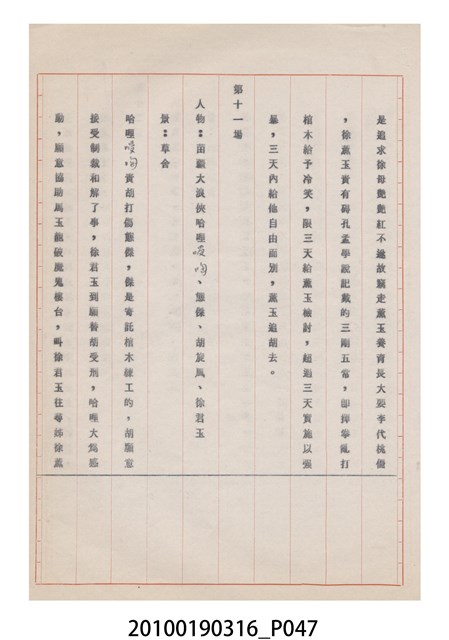 是追求徐母艷艷紅不遂故竊走薰玉養育長大要李代桃僵
，徐薰玉責有碍孔孟學說記載的三剛五常，卽揮拳亂打
棺木給予冷笑，限三天給薰玉檢討，超過三天實施以強
暴，三天內給他自由而別，薰玉追胡去。
第十一場
人物：苗疆大浪俠哈哩、熊傑、胡旋風、徐君玉
景：草舍
哈哩責胡打傷熊傑，傑是寄託棺木練工的，胡願意
接受制裁和解了事，徐君玉到願替胡受刑，哈哩大爲感
動，願意協助馬玉龍破魔鬼樓台，叫徐君玉往尋姊徐薰
20100190316_P047